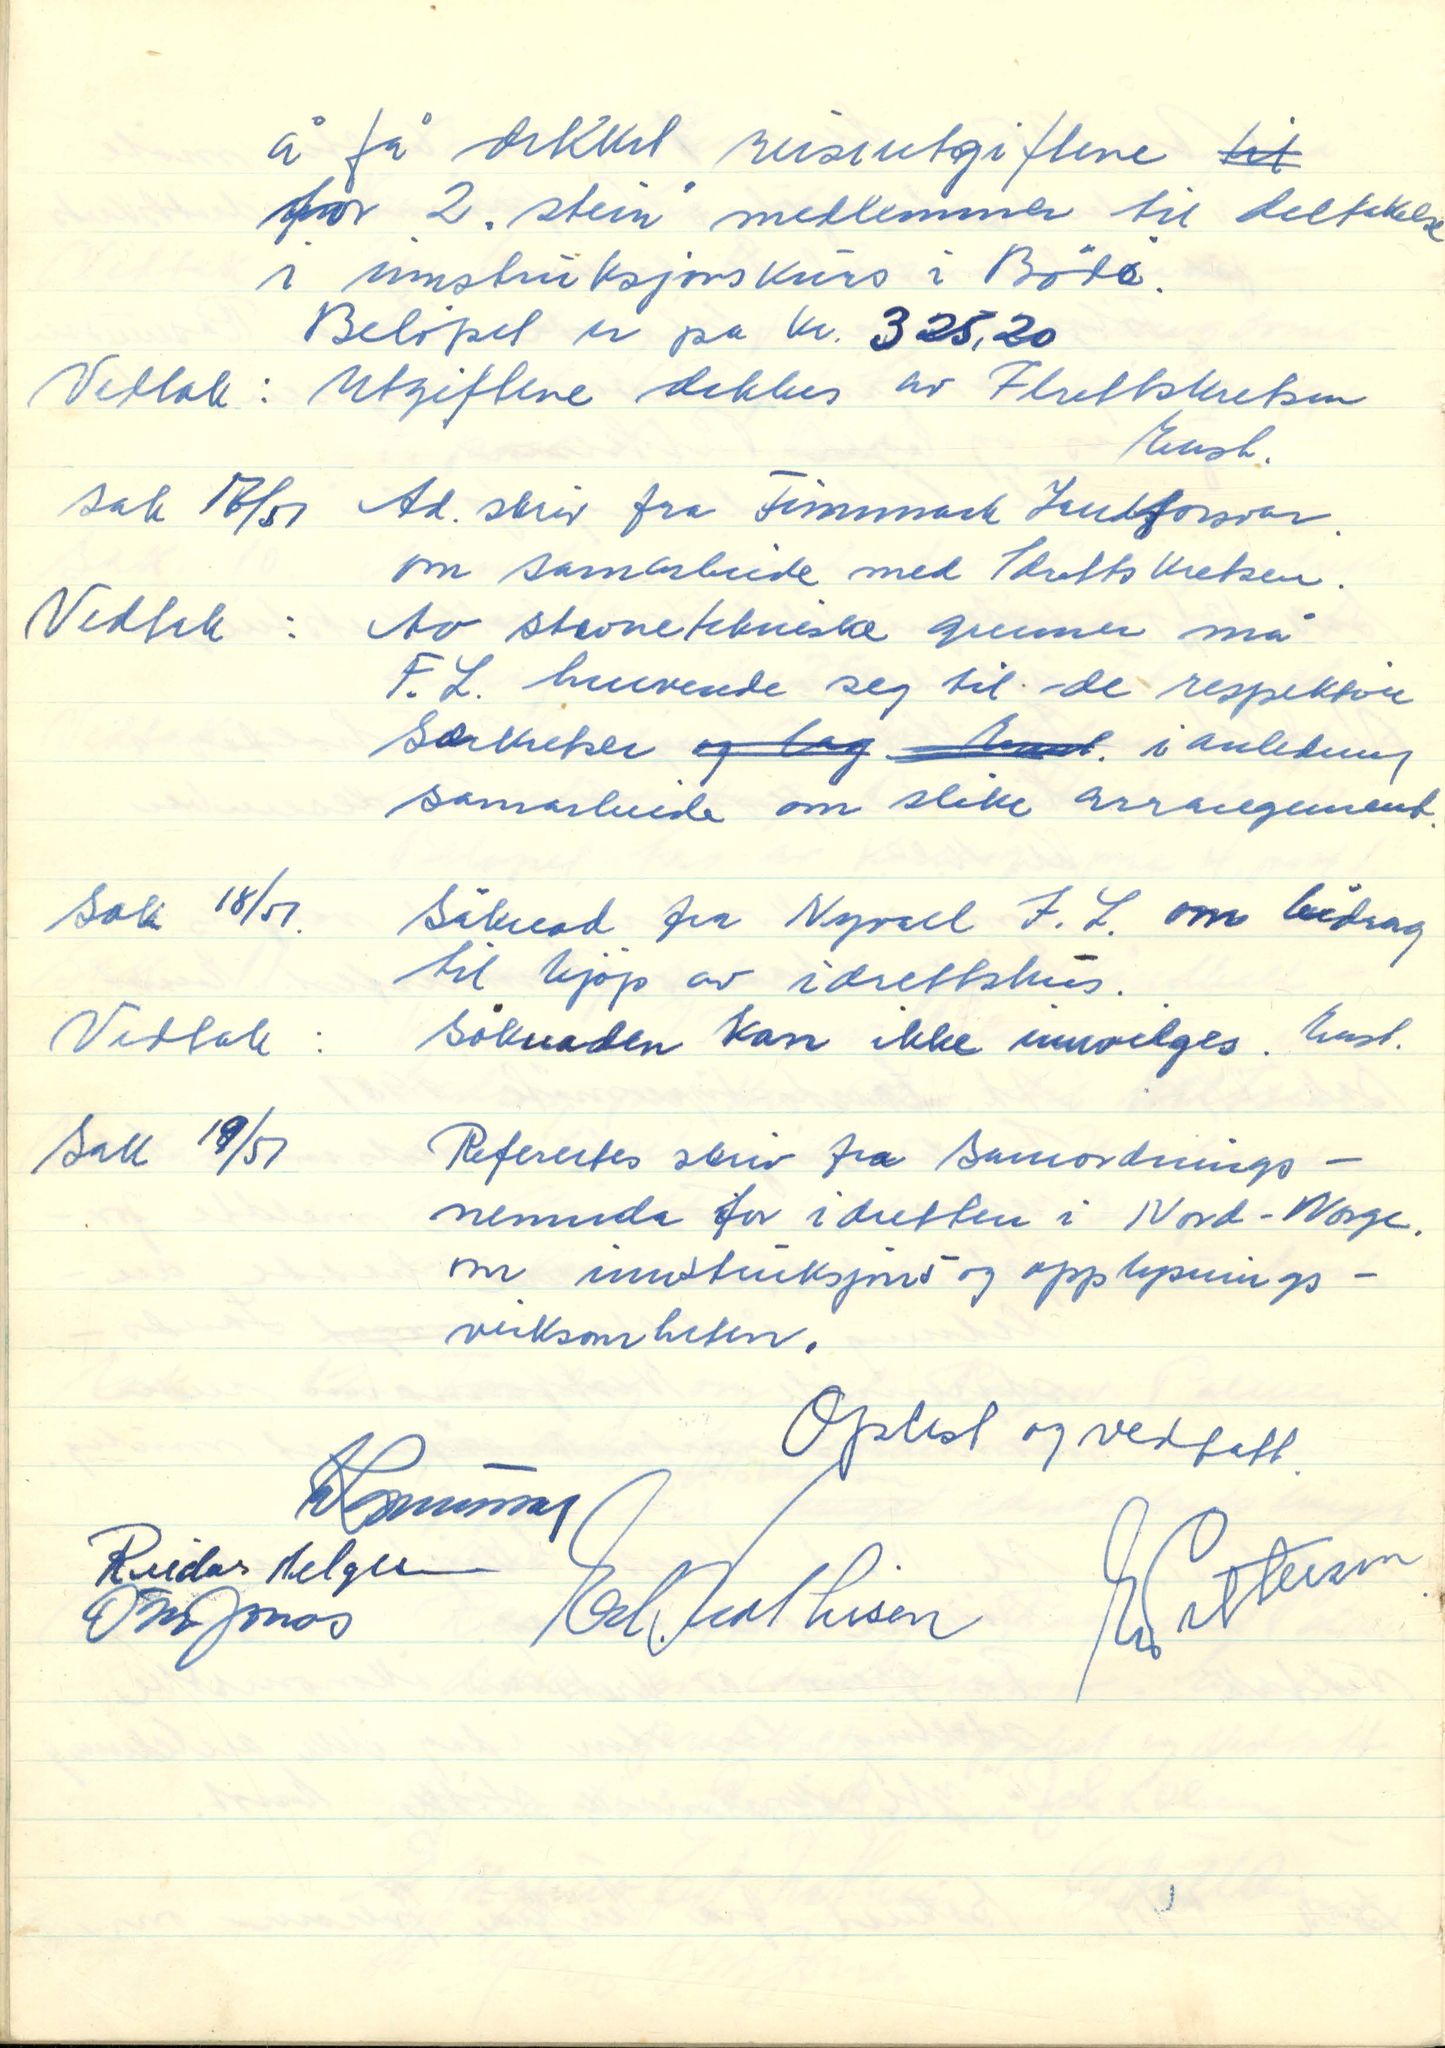 å få dekket reiseutgiftene ~~til~~
for 2. stein medlemmer til deltakelse
i innstruksjonskurs i Bödö.
Belöpet er på kr. 325,20
Vedtak: Utgiftene dekkes av Idrettskretsen
Enst.
Sak 17/51 Ad. skriv fra Finnmark Landforsvar
om samarbeide med Idrettskretsen.
Vedtak: Av stevnetekniske grunner må
F.L. henvende seg til de respektive
Særkretser ~~og lag~~ ~~Enst.~~ i anledning
samarbeide om slike arrangement.
Sak 18/51. Söknad fra Nyvoll I.L. om bidrag
til kjöp av idrettshus.
Vedtak: Söknaden kan ikke innvilges. Enst.
Sak 19/51 Refertes skriv fra Samordnings-
nemnda for idretten i Nord-Norge.
om innstruksjons og opplysnings-
virksomheten.
Oplest og vedtatt.
Reidar Helgesen